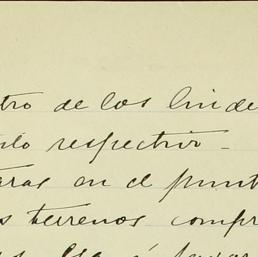 tro de los linde
ulo respectivo -
aras en el punt
s terrenos compr